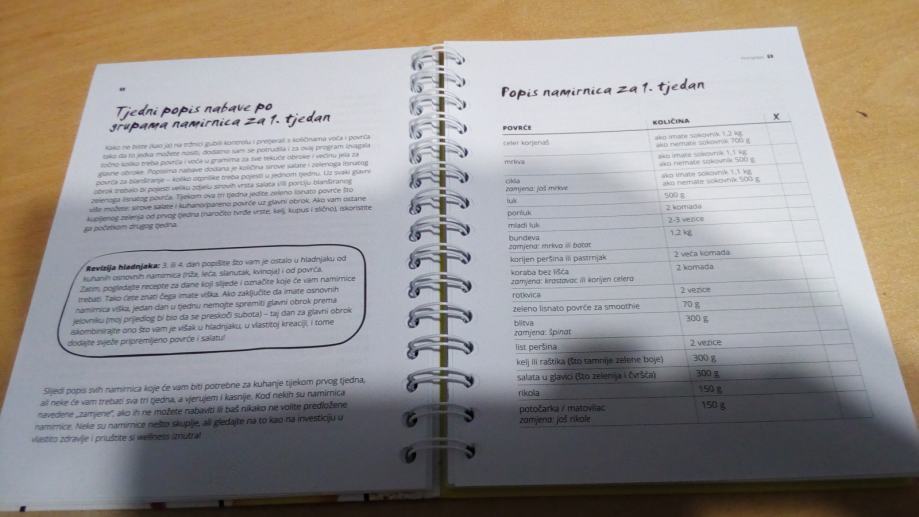 Tjedni popis nabave po
grupama namirnica za 1. tjedan
Kako ne biste (kao ja) na tržnici gubili kontrolu i pretjerali s količinama voća i povrća
tako da to jedva možete nositi, dodatno sam se potrudila i za ovaj program izvagala
točno koliko treba povrća i voća u gramima za sve tekuće obroke i većinu jela za
glavne obroke. Popisima nabave dodana je količina sirove salate i zelenoga lisnatog
povrća za blanširanje – koliko otprilike treba pojesti u jednom tjednu. Uz svaki glavni
obrok trebalo bi pojesti veliku zdjelu sirovih vrsta salata i/ili porciju blanširanog
zelenoga lisnatog povrća. Tijekom ova tri tjedna jedite zeleno lisnato povrće što
više možete: sirove salate i kuhano/pareno povrće uz glavni obrok. Ako vam ostane
kupljenog zelenja od prvog tjedna (naročito tvrđe vrste, kelj, kupus i slično), iskoristite
ga početkom drugog tjedna.
Revizija hladnjaka: 3. ili 4. dan popišite što vam je ostalo u hladnjaku od
kuhanih osnovnih namirnica (riža, leća, slanutak, kvinoja) i od povrća.
Zatim, pogledajte recepte za dane koji slijede i označite koje će vam namirnice
trebati. Tako ćete znati čega imate viška. Ako zaključite da imate osnovnih
namirnica viška, jedan dan u tjednu nemojte spremiti glavni obrok prema
jelovniku (moj prijedlog bi bio da se preskoči subota) – taj dan za glavni obrok
iskombinirajte ono što vam je višak u hladnjaku, u vlastitoj kreaciji, i tome
dodajte svježe pripremljeno povrće i salatu!
Slijedi popis svih namirnica koje će vam biti potrebne za kuhanje tijekom prvog tjedna,
ali neke će vam trebati sva tri tjedna, a vjerujem i kasnije. Kod nekih su namirnica
navedene „zamjene”, ako ih ne možete nabaviti ili baš nikako ne volite predložene
namirnice. Neke su namirnice nešto skuplje, ali gledajte na to kao na investiciju u
vlastito zdravlje i priuštite si wellness iznutra!
Popis namirnica za 1. tjedan
POVRĆE KOLIČINA X
celer korjenaš ako imate sokovnik 1,2 kg
ako nemate sokovnik 700 g
mrkva ako imate sokovnik 1,1 kg
ako nemate sokovnik 500 g
cikla ako imate sokovnik 1,1 kg
zamjena: još mrkve ako nemate sokovnik 500 g
luk 500 g
poriluk 2 komada
mladi luk 2-3 vezice
bundeva 1,2 kg
zamjena: mrkva ili batat
korijen peršina ili pastrnjak 2 veća komada
koraba bez lišća 2 komada
zamjena: krastavac ili korijen celera
rotkvica 2 vezice
zeleno lisnato povrće za smoothie 70 g
blitva 300 g
zamjena: špinat
list peršina 2 vezice
kelj ili raštika (što tamnije zelene boje) 300 g
salata u glavici (što zelenija i čvršća) 300 g
rikola 150 g
potočarka / matovilac 150 g
zamjena: još rikole